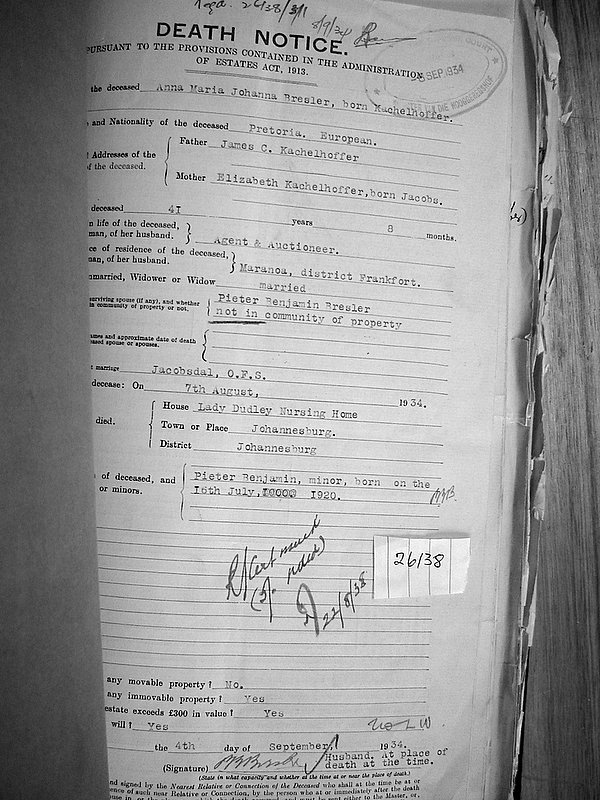 26138/3/1
8/9/34
DEATH NOTICE.
PURSUANT TO THE PROVISIONS CONTAINED IN THE ADMINISTRATION
OF ESTATES ACT, 1913.
SEP 1934
the deceased Anna Maria Johanna Bresler, born Kachelhoffer.
and Nationality of the deceased Pretoria. European.
Addresses of the
of the deceased.
Father James C. Kachelhoffer
Mother Elizabeth Kachelhoffer, born Jacobs.
deceased 41 years 8 months.
in life of the deceased,
man, of her husband.
Agent & Auctioneer.
ce of residence of the deceased,
man, of her husband.
Maranoa, district Frankfort.
nmarried, Widower or Widow married
surviving spouse (if any), and whether
in community of property or not.
Pieter Benjamin Bresler
not in community of property
ames and approximate date of death
ased spouse or spouses.
marriage Jacobsdal, O.F.S.
decease: On 7th August, 1934.
died.
House Lady Dudley Nursing Home
Town or Place Johannesburg.
District Johannesburg
of deceased, and
or minors.
Pieter Benjamin, minor, born on the
16th July, 1920.
26138
22/8/38
any movable property? No.
any immovable property? Yes
estate exceeds £300 in value? Yes
will? Yes
the 4th day of September, 1934.
(Signature)
Husband. At place of
death at the time.
(State in what capacity and whether at the time at or near the place of death.)
nd signed by the Nearest Relative or Connection of the Deceased who shall be at or
ence of such near Relative or Connection, by the person who at or immediately after the death